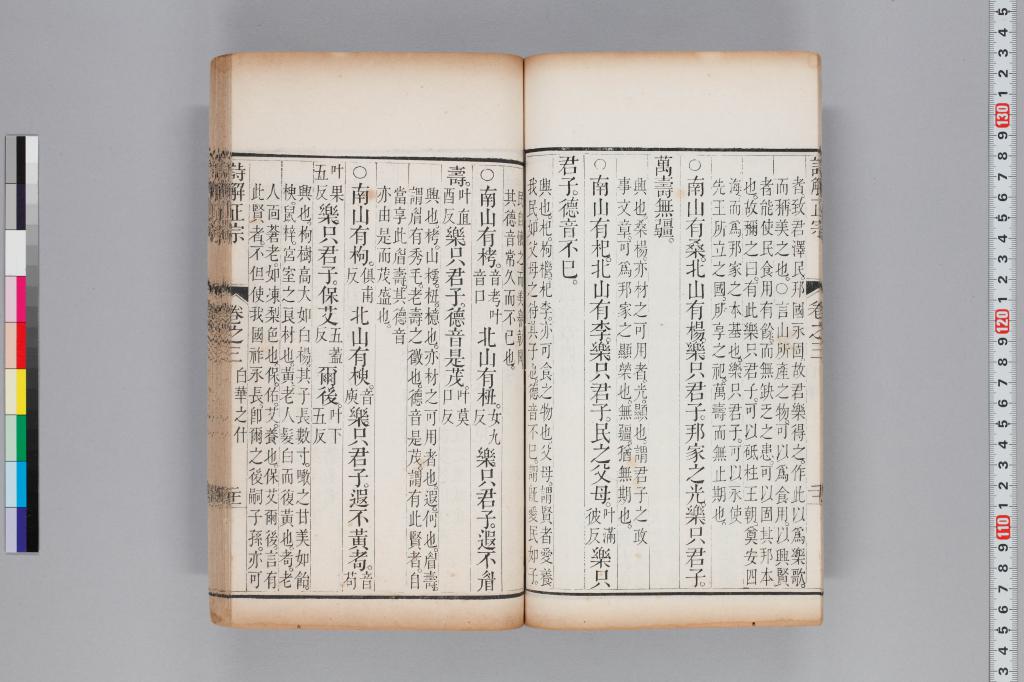 者致君澤民邦國永固故君樂得之作此以爲樂歌
而稱美之也○言山所產之物可以爲食用以興賢
者能使民食用有餘而無缺乏之患可以固其邦本
也故彌之曰有此樂只君子可以砥柱王朝奠安四
海而爲邦家之本基也樂只君子可以永使
先王所立之國所享之祀萬壽而無止期也
○南山有桑北山有楊樂只君子邦家之光樂只君子
萬壽無疆
興也桑楊亦材之可用者光顯也謂君子之政
事文章可爲邦家之顯榮也無疆猶無期也
○南山有杞北山有李樂只君子民之父母叶滿彼反樂只
君子德音不已
興也杞枸檵杞李亦可食之物也父母謂賢者愛養
我民如父母之待其子也德音不已謂旣愛民如子
其德音常久而不已也
○南山有栲音考叶音口北山有杻女九反樂只君子遐不眉
壽叶直酉反樂只君子德音是茂叶莫口反
興也栲山樗杻檍也亦材之可用者也遐何也眉壽
謂眉有秀毛老壽之徵也德音是茂謂有此賢者自
當享此眉壽其德音
亦由是而茂盛也
○南山有枸俱甫反北山有楰音庾樂只君子遐不黃耇音苟
叶果五反樂只君子保艾五蓋反爾後叶下五反
興也枸樹高大如白楊其子長數寸噉之甘美如飴
楰鼠梓宮室之良材也黃老人髮白而復黃也耇老
人面蒼老如凍梨色也保佑艾養也保艾爾後言有
此賢者不但使我國祚永長卽爾之後嗣子孫亦可
詩解正宗
卷之三
白華之什